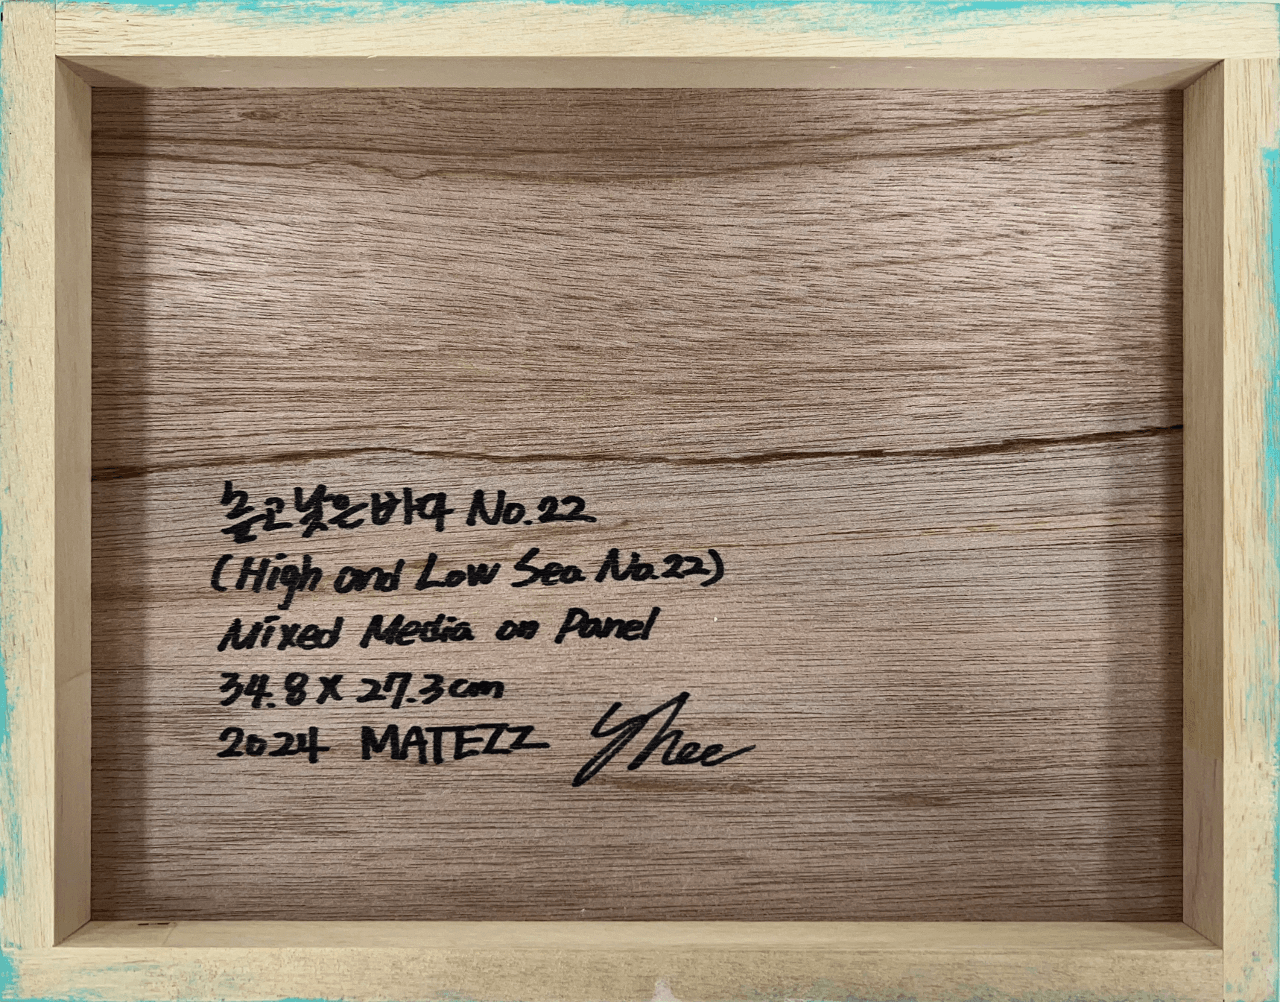 높고 낮은 바다 No.22
(High and Low Sea No.22)
Mixed Media on Panel
34.8 X 27.3 cm
2024 MATEZZ Yhee